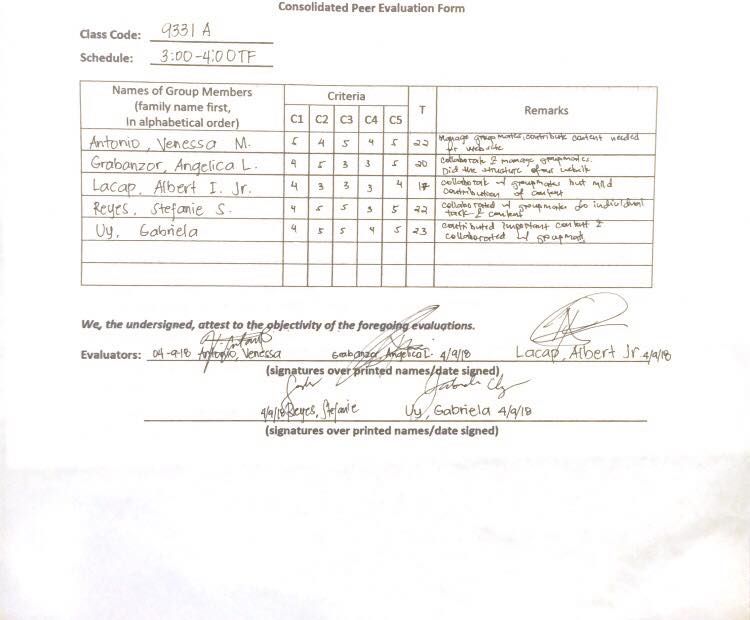 Consolidated Peer Evaluation Form
Class Code: 9331 A
Schedule: 3:00-4:00 TF
Names of Group Members
(family name first,
In alphabetical order)
Criteria
T
Remarks
C1 C2 C3 C4 C5
Antonio, Venessa M. 5 4 5 4 5 22 Manage groupmates, contribute content needed
for website
Grabanzor, Angelica L. 4 5 3 3 5 20 collaborate & manage groupmates.
Did the structure of our website
Lacap, Albert I. Jr. 4 3 3 3 4 17 collaborate w/ groupmates but mild
contribution of content
Reyes, Stefanie S. 4 5 5 3 5 22 collaborated w/ groupmates do individual
task & content
Uy, Gabriela 4 5 5 4 5 23 contributed important content &
collaborated w/ groupmates
We, the undersigned, attest to the objectivity of the foregoing evaluations.
Evaluators: 04-9-18 Antonio, Venessa Grabanzor, Angelica L. 4/9/18 Lacap, Albert Jr 4/9/18
(signatures over printed names/date signed)
4/9/18 Reyes, Stefanie Uy, Gabriela 4/9/18
(signatures over printed names/date signed)